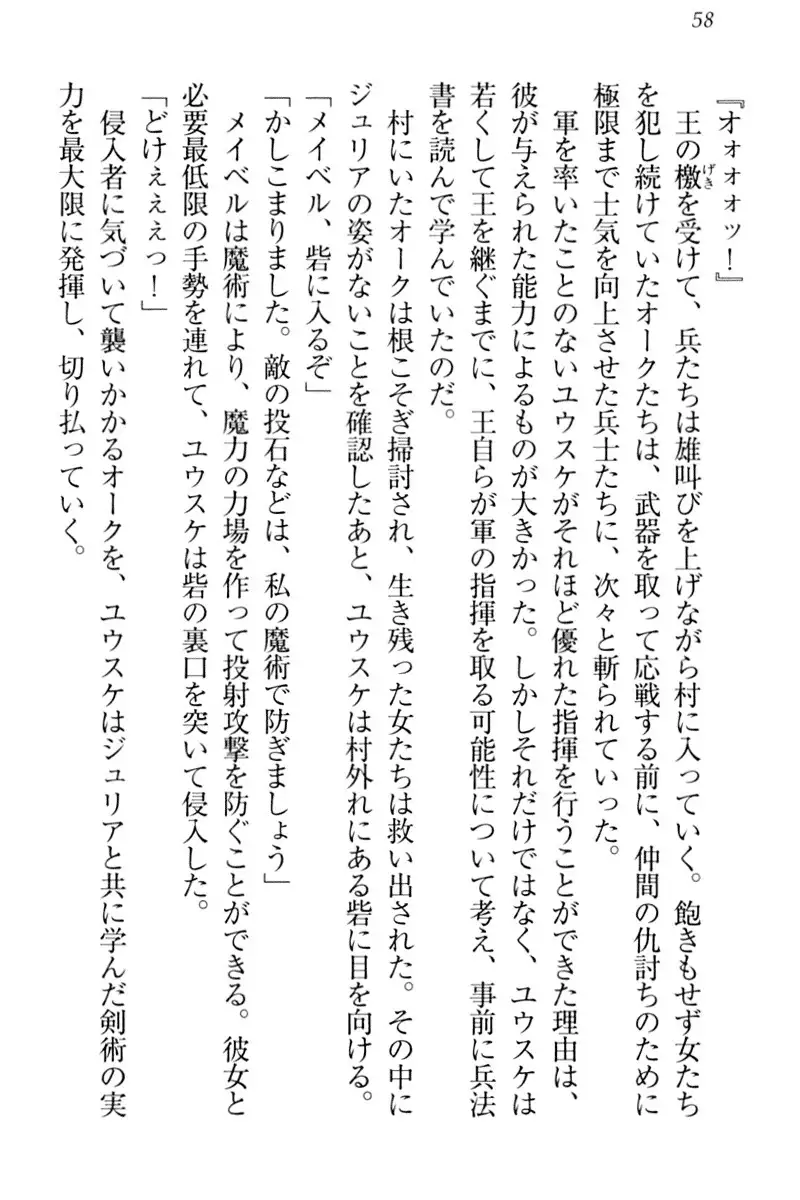 58
『オォォォッ！』
　王の檄を受けて、兵たちは雄叫びを上げながら村に入っていく。飽きもせず女たち
を犯し続けていたオークたちは、武器を取って応戦する前に、仲間の仇討ちのために
極限まで士気を向上させた兵士たちに、次々と斬られていった。
　軍を率いたことのないユウスケがそれほど優れた指揮を行うことができた理由は、
彼が与えられた能力によるものが大きかった。しかしそれだけではなく、ユウスケは
若くして王を継ぐまでに、王自らが軍の指揮を取る可能性について考え、事前に兵法
書を読んで学んでいたのだ。
　村にいたオークは根こそぎ掃討され、生き残った女たちは救い出された。その中に
ジュリアの姿がないことを確認したあと、ユウスケは村外れにある砦に目を向ける。
「メイベル、砦に入るぞ」
「かしこまりました。敵の投石などは、私の魔術で防ぎましょう」
　メイベルは魔術により、魔力の力場を作って投射攻撃を防ぐことができる。彼女と
必要最低限の手勢を連れて、ユウスケは砦の裏口を突いて侵入した。
「どけぇぇぇっ！」
　侵入者に気づいて襲いかかるオークを、ユウスケはジュリアと共に学んだ剣術の実
力を最大限に発揮し、切り払っていく。